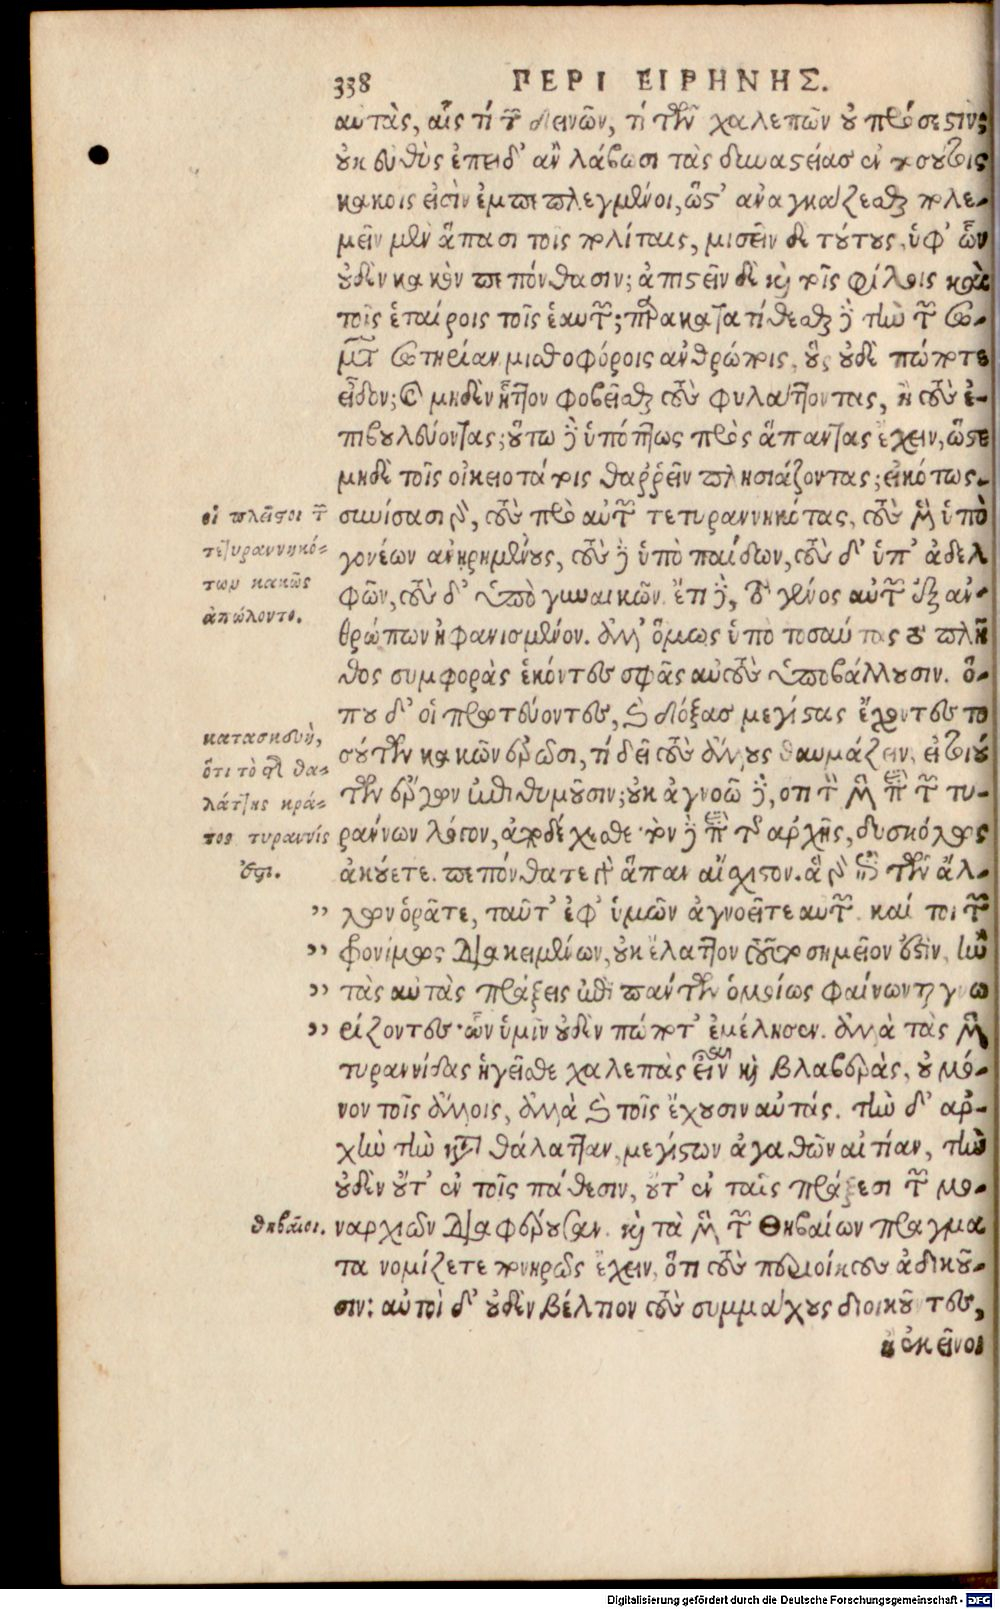 338 ΠΕΡΙ ΕΙΡΗΝΗΣ.
αυτὰς, αἷς τί τῶν δεινῶν, τί τῶν χαλεπῶν οὐ πρόσεστιν;
οὐκ εὐθὺς ἐπειδ' ἂν λάβωσι τὰς δυναστείας ἐν τοσούτοις
κακοῖς εἰσὶν ἐμπεπλεγμένοι, ὥστ' ἀναγκάζεσθαι πολε-
μεῖν μὲν ἅπασι τοῖς πολίταις, μισεῖν δὲ τούτους, ὑφ' ὧν
οὐδὲν κακὸν πεπόνθασιν; ἀπιστεῖν δὲ καὶ τοῖς φίλοις καὶ
τοῖς ἑταίροις τοῖς ἑαυτῶν; παρακατατίθεσθαι δὲ τὴν τῶν σω-
μάτων σωτηρίαν μισθοφόροις ἀνθρώποις, οὓς οὐδὲ πώποτε
εἶδον; καὶ μηδὲν ἧττον φοβεῖσθαι τοὺς φυλάττοντας, ἢ τοὺς ἐ-
πιβουλεύοντας; οὕτω δὲ ὑπόπτως πρὸς ἅπαντας ἔχειν, ὥστε
μηδὲ τοῖς οἰκειοτάτοις θαῤῥεῖν πλησιάζοντας; εἰκότως.
οἱ πλεῖστοι τῶν
τετυραννηκό-
των κακῶς
ἀπώλοντο.
συνίσασι γὰρ, τοὺς πρὸ αὐτῶν τετυραννηκότας, τοὺς μὲν ὑπὸ
γονέων ἀνῃρημένους, τοὺς δὲ ὑπὸ παίδων, τοὺς δ' ὑπ' ἀδελ
φῶν, τοὺς δ' ὑπὸ γυναικῶν. ἔτι δὲ, τὸ γένος αὐτῶν ἐξ ἀν-
θρώπων ἠφανισμένον. ἀλλ' ὅμως ὑπὸ τοσαύτας τὸ πλῆ
θος συμφορὰς ἑκόντες σφᾶς αὐτοὺς ὑποβάλλουσιν. ὅ-
που δ' οἱ πρωτεύοντες, καὶ δόξας μεγίστας ἔχοντες το
κατασκευὴ,
ὅτι τὸ τῆς θα-
λάττης κρά-
τος τυραννίς
ἐστι.
σούτων κακῶν ἐρῶσι, τί δεῖ τοὺς ἄλλους θαυμάζειν, εἰ τοιού
των ἑτέρων ἐπιθυμοῦσιν; οὐκ ἀγνοῶ δὲ, ὅτι τὸν μὲν περὶ τῶν τυ-
ράννων λόγον, ἀποδέχεσθε· τὸν δὲ περὶ τῆς ἀρχῆς, δυσκόλως
ἀκούετε. πεπόνθατε γὰρ ἅπαν αἴσχιστον. ἃ γὰρ ἐπὶ τῶν ἄλ-
„ λων ὁρᾶτε, ταῦτ' ἐφ' ὑμῶν ἀγνοεῖτε αὐτῶν. καί τοι τῶν
„ φρονίμως διακειμένων, οὐκ ἔλαττον τοῦτο σημεῖον ἐστὶν, ἢν
„ τὰς αὐτὰς πράξεις ἐπὶ πάντων ὁμοίως φαίνωνται γνω
„ ρίζοντες· ὧν ὑμῖν οὐδὲν πώποτ' ἐμέλησεν. ἀλλὰ τὰς μὲν
τυραννίδας ἡγεῖσθε χαλεπὰς εἶναι καὶ βλαβερὰς, οὐ μό-
νον τοῖς ἄλλοις, ἀλλὰ καὶ τοῖς ἔχουσιν αὐτάς. τὴν δ' ἀρ-
χὴν τὴν κατὰ θάλατταν, μεγίστων ἀγαθῶν αἰτίαν, τὴν
οὐδὲν οὔτ' ἐν τοῖς πάθεσιν, οὔτ' ἐν ταῖς πράξεσι τῶν μο-
θηβαῖοι.
ναρχιῶν διαφέρουσαν. καὶ τὰ μὲν τῶν Θηβαίων πράγμα
τα νομίζετε πονηρῶς ἔχειν, ὅτι τοὺς περιοίκους ἀδικοῦ-
σιν: αὐτοὶ δ' οὐδὲν βέλτιον τοὺς συμμάχους διοικοῦντες,
ἢ ἐκεῖνοι
Digitalisierung gefördert durch die Deutsche Forschungsgemeinschaft - DFG